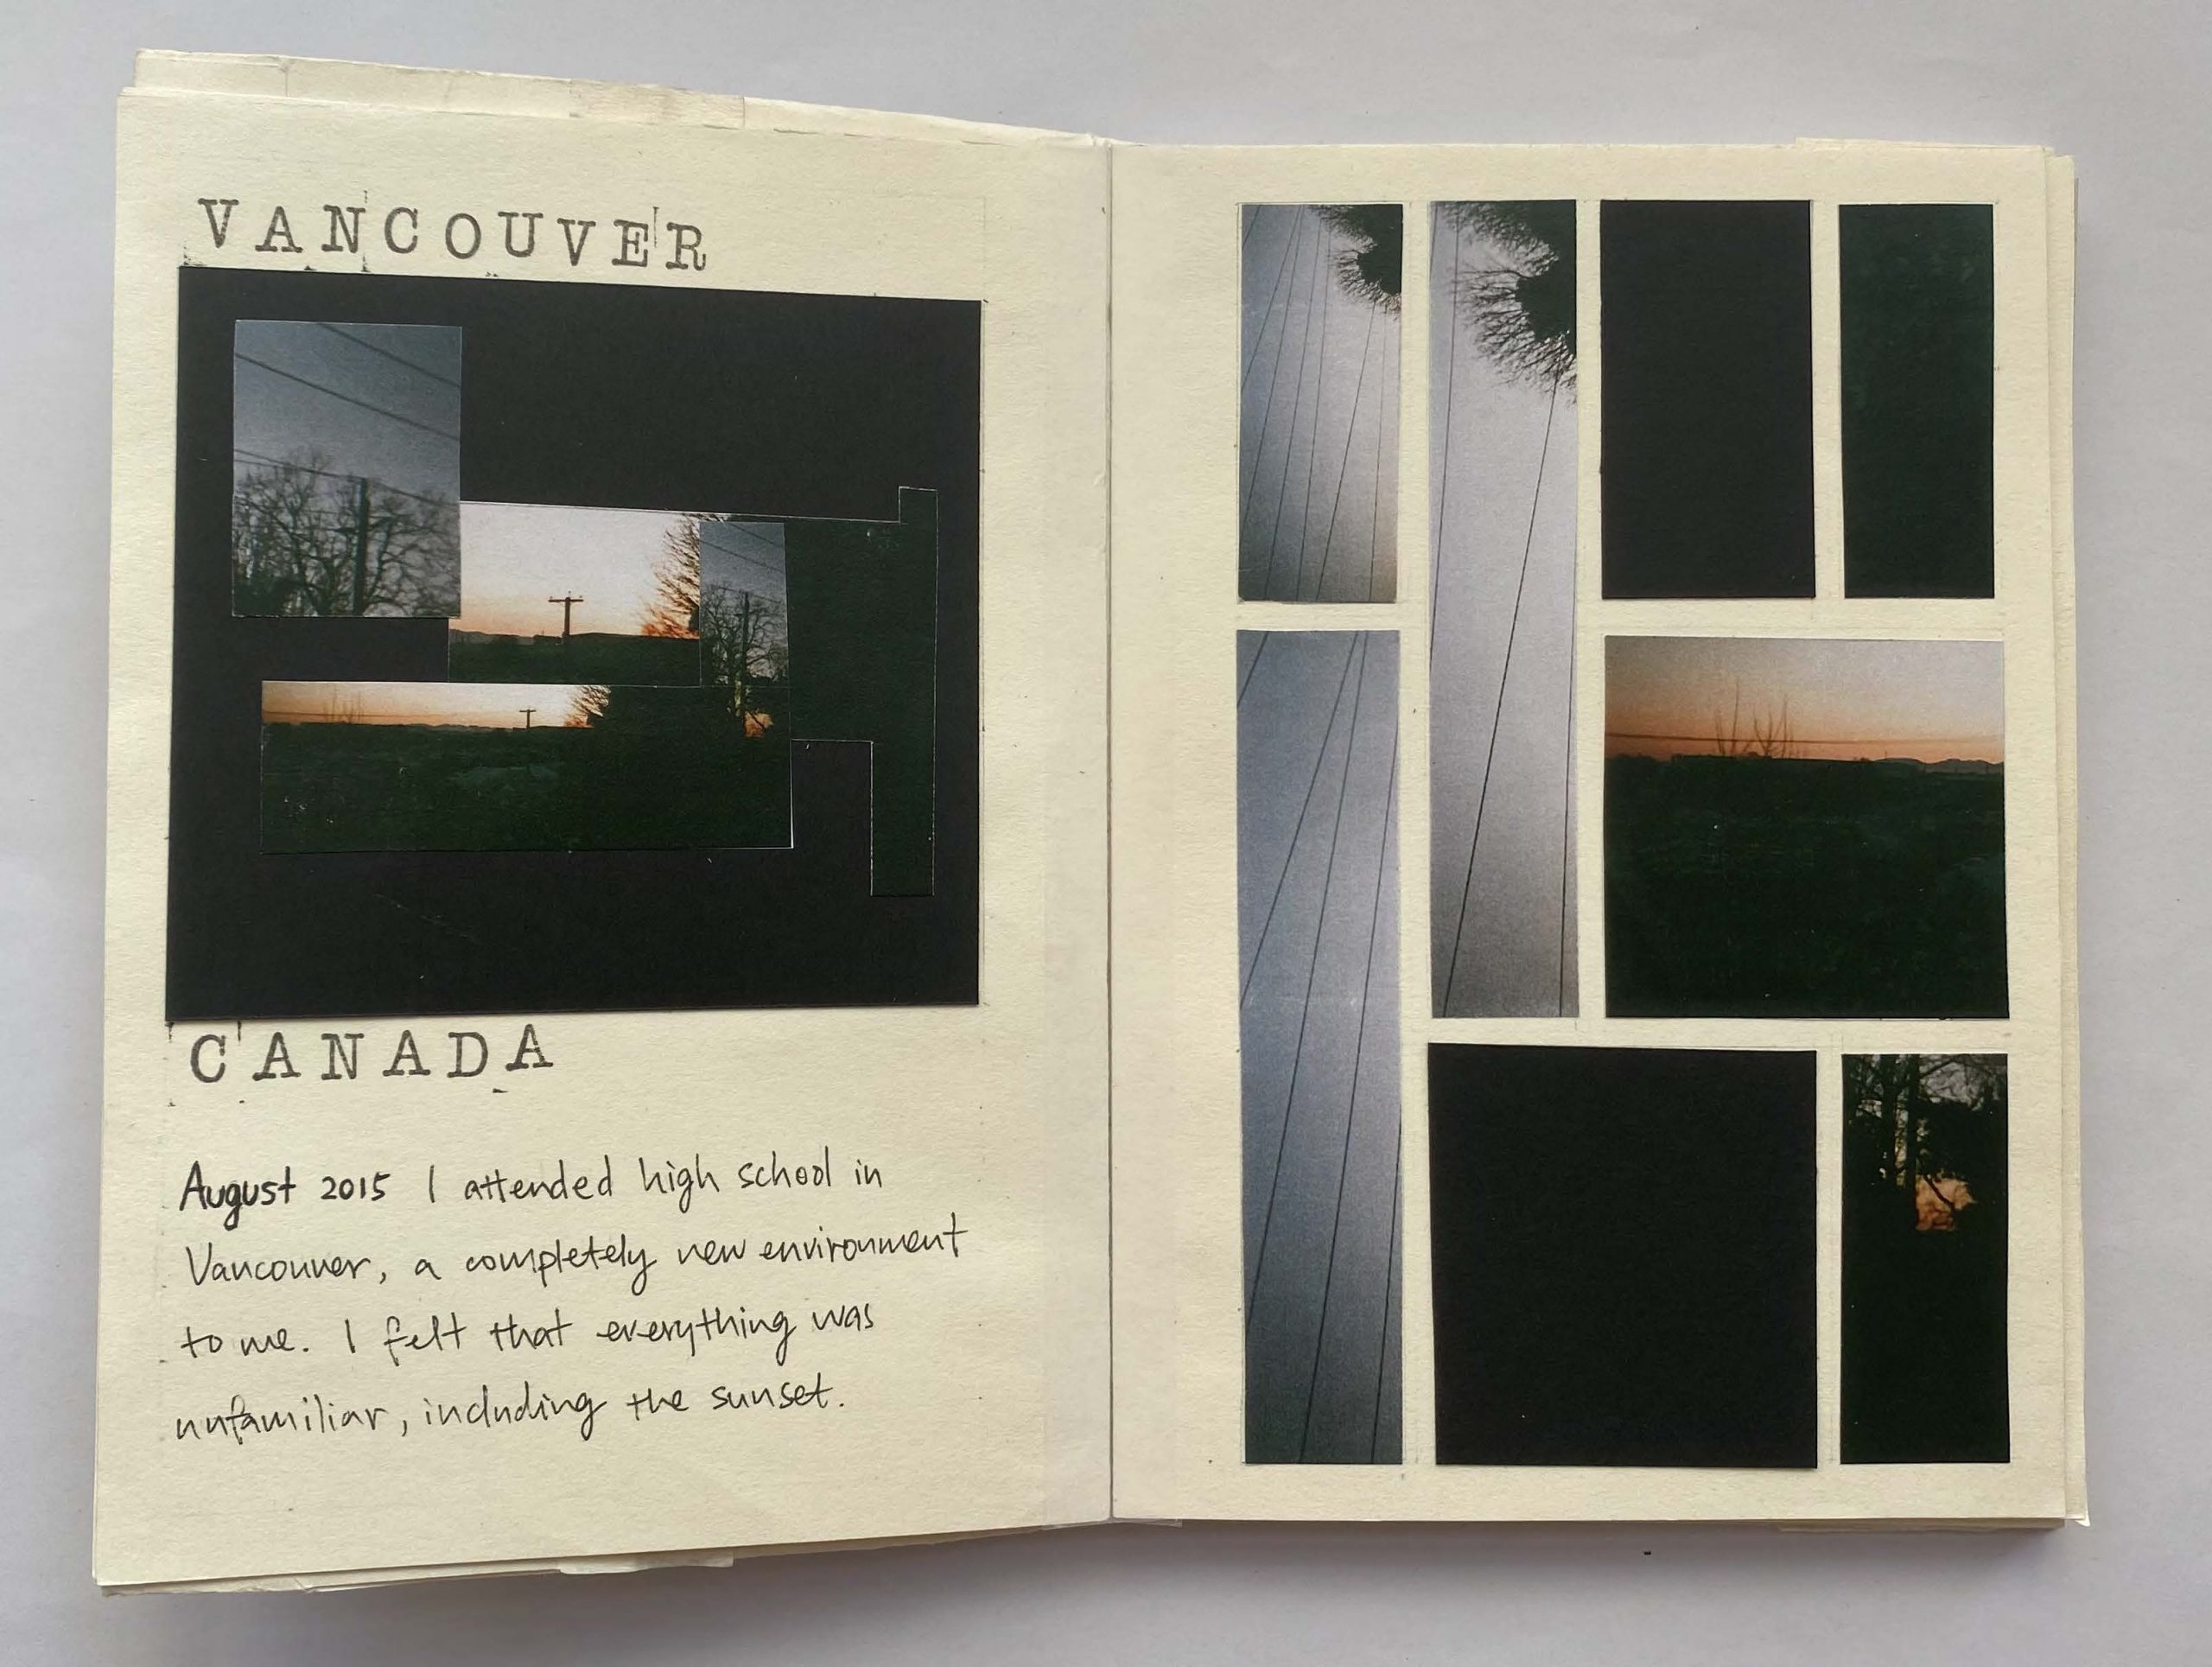 VANCOUVER
CANADA
August 2015 I attended high school in
Vancouver, a completely new environment
to me. I felt that everything was
unfamiliar, including the sunset.